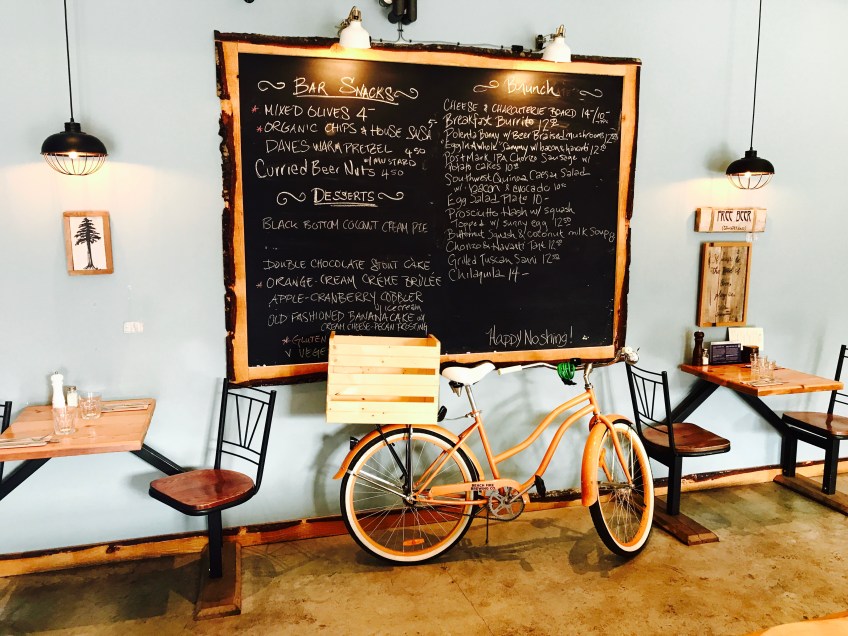 BAR SNACKS
* MIXED OLIVES 4-
* ORGANIC CHIPS & HOUSE SALSA 5-
DAVES WARM PRETZEL 4.50
* 1 MUSTARD
CURRIED BEER NUTS 4.50
DESSERTS
BLACK BOTTOM COCONUT CREAM PIE
...
DOUBLE CHOCOLATE STOUT CAKE
* ORANGE-CREAM CRÈME BRÛLÉE
APPLE-CRANBERRY COBBLER
w/ ICE CREAM
OLD FASHIONED BANANA CAKE w/
CREAM CHEESE-PECAN FROSTING
* GLUTEN
V VEGE
Brunch
CHEESE & CHARCUTERIE BOARD 14-/10-
Breakfast Burrito 12.50
Polenta Bowl w/ Beer Braised mushrooms 12.50
"Egg in a Whole" Sammy w/ bacon & havarti 12.50
Post Mark IPA Chorizo Sausage w/
potato cakes 10.50
Southwest Quinoa Caesar Salad
w/ bacon & avocado 10.50
Egg Salad Plate 10-
Prosciutto Hash w/ squash
Topped w/ sunny egg 12.50
Butternut Squash & coconut milk Soup 8
Chorizo & Havarti Tart 12.50
Grilled Tuscan Sami 12.50
Chilaquila 14-
Happy Noshing!
FREE BEER
BEACH FIRE
BREWING CO.